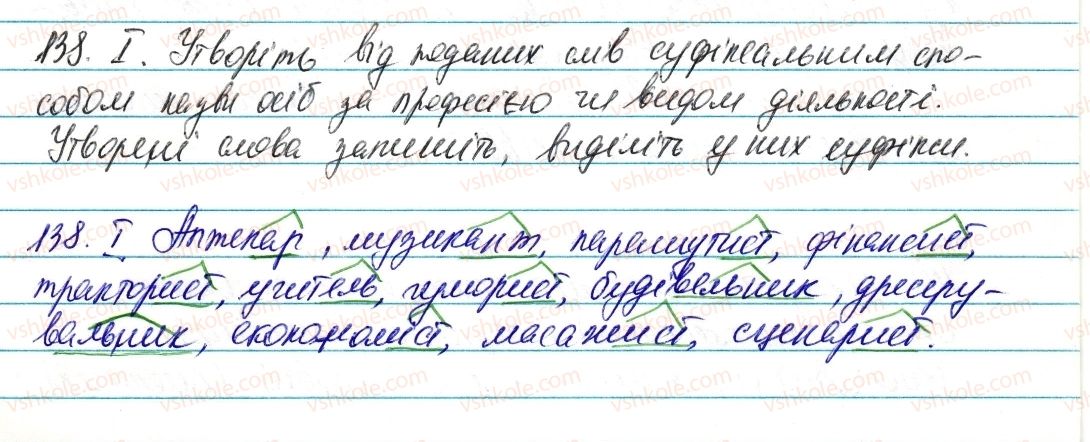 138. I. Утворіть від поданих слів суфіксальним спо-
собом назви осіб за професією чи видом діяльності.
Утворені слова запишіть, виділіть у них суфікси.
138. I Аптекар, музикант, парашутист, фінансист,
тракторист, учитель, гуморист, будівельник, дресиру-
вальник, економіст, масажист, сценарист.